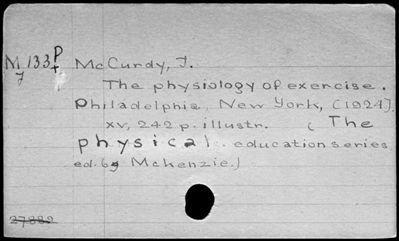 M133p McCurdy, J.
7 +
The physiology of exercise.
Philadelphia, New York, (1924).
xv, 242 p. illustr. ( The
physical education series
ed. by Mckenzie.)
27882